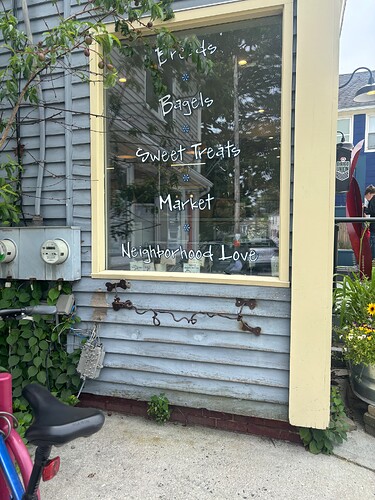 Breads
Bagels
Sweet Treats
Market
Neighborhood Love